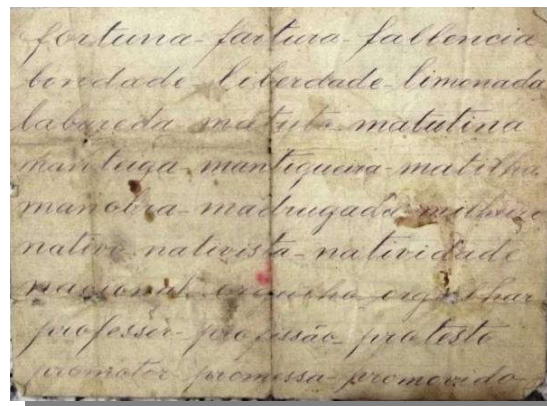 fortuna - fartura - fallencia
bondade - liberdade - limonada
labareda matuto matutina
mantuga mantiqueira - matilha
manobra - madrugada - milheiro
nativo nativista - natividade
nacional orgulho orgulhar
professor - profissão - protesto
promotor - promessa - promovido